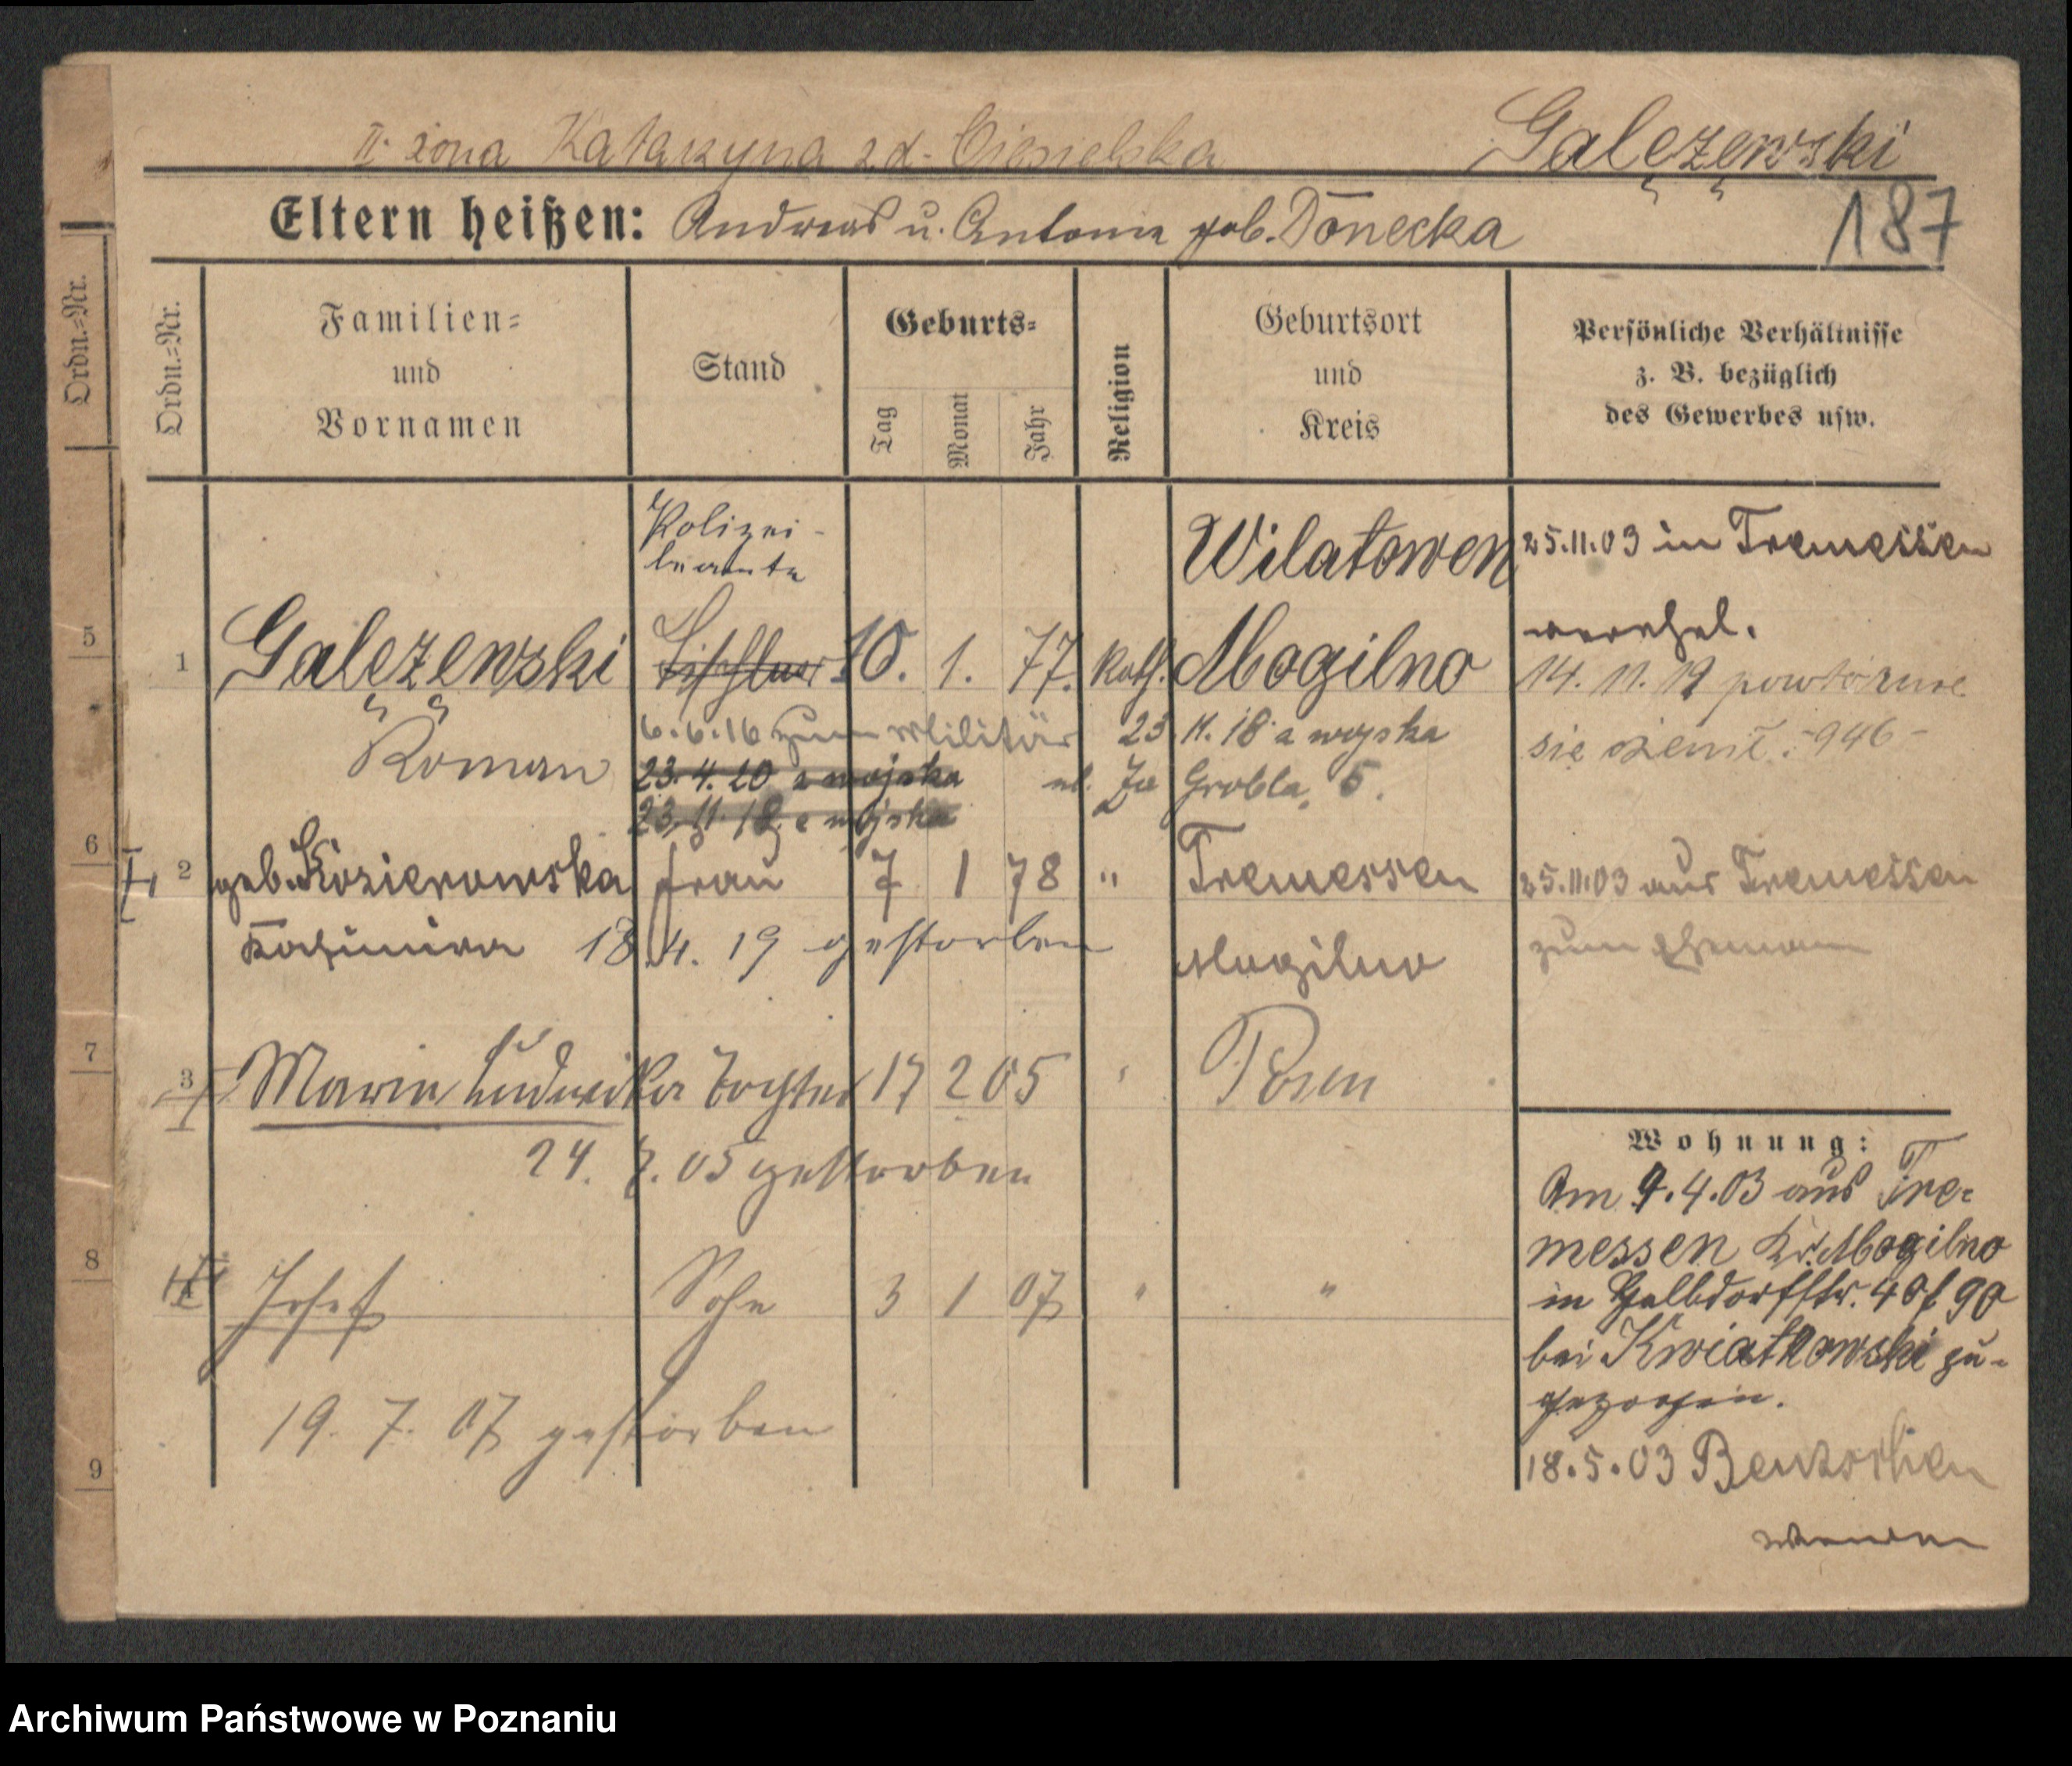 II. żona Katarzyna zd. Ciesielska
Galęzęwski
187
Eltern heißen: Andreas u. Antonie geb. Donecka
Ordn.=Nr.
Ordn.=Nr.
Familien=
und
Vornamen
Stand
Geburts=
Tag
Monat
Jahr
Religion
Geburtsort
und
Kreis
Persönliche Verhältnisse
z. B. bezüglich
des Gewerbes usw.
Polizei-
beamte
Wilatowen
25.11.03 in Tremessen
verehel.
5
1
Galęzęwski
Tischler
10. 1. 77. kath.
Mogilno
14. 11. 19 powtórnie
się ożenił. 946
Roman
6.6.16 zum Militär
23 11. 18 z wojska
23.4.20 z wojska
ul. Za Grobla, 5.
23.11.18 z wojska
6
2
geb. Kozierowska
Frau
7 1 78 "
Tremessen
25.11.03 aus Tremessen
zum Ehemann
Kasimira 18.4.19 gestorben
Mogilno
7
3
Maria Ludwika Tochter 17 2 05 "
Posen
24. 7. 05 gestorben
Wohnung:
Am 9.4.03 aus Tre=
messen Kr. Mogilno
in Halbdorfstr. 40 f 90
bei Kwiatkowski zu-
gezogen.
8
Josef
Sohn
3 1 07 " "
19. 7. 07 gestorben
9
18.5.03
Archiwum Państwowe w Poznaniu